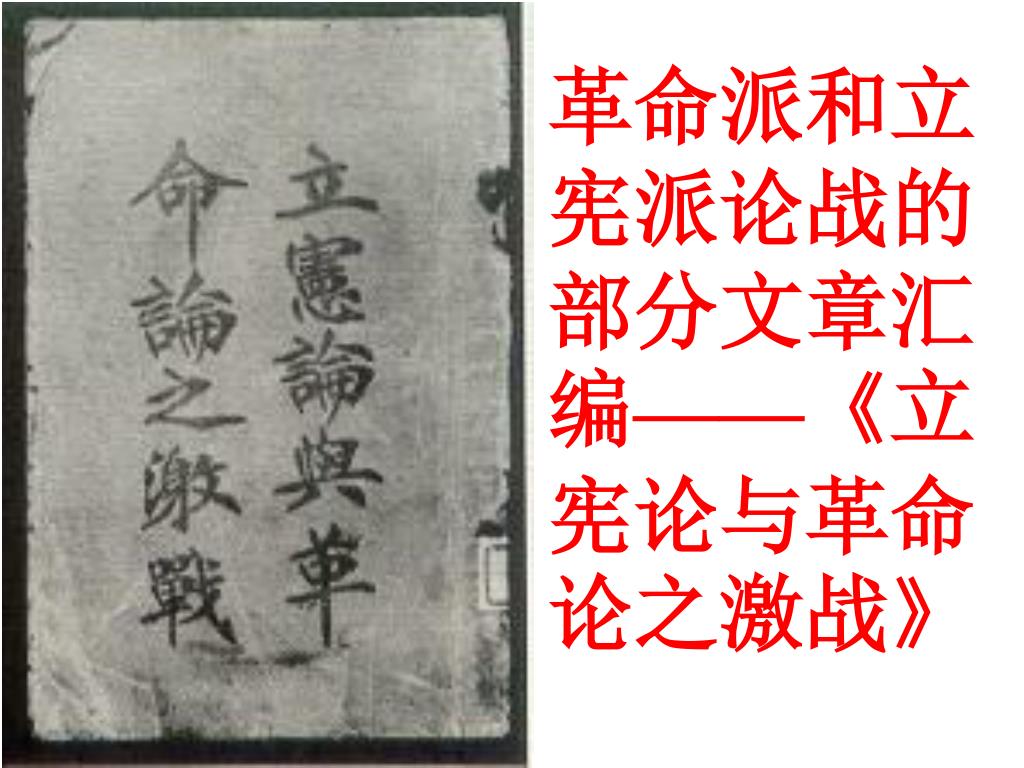 立憲論與革
命論之激戰
革命派和立
宪派论战的
部分文章汇
编——《立
宪论与革命
论之激战》